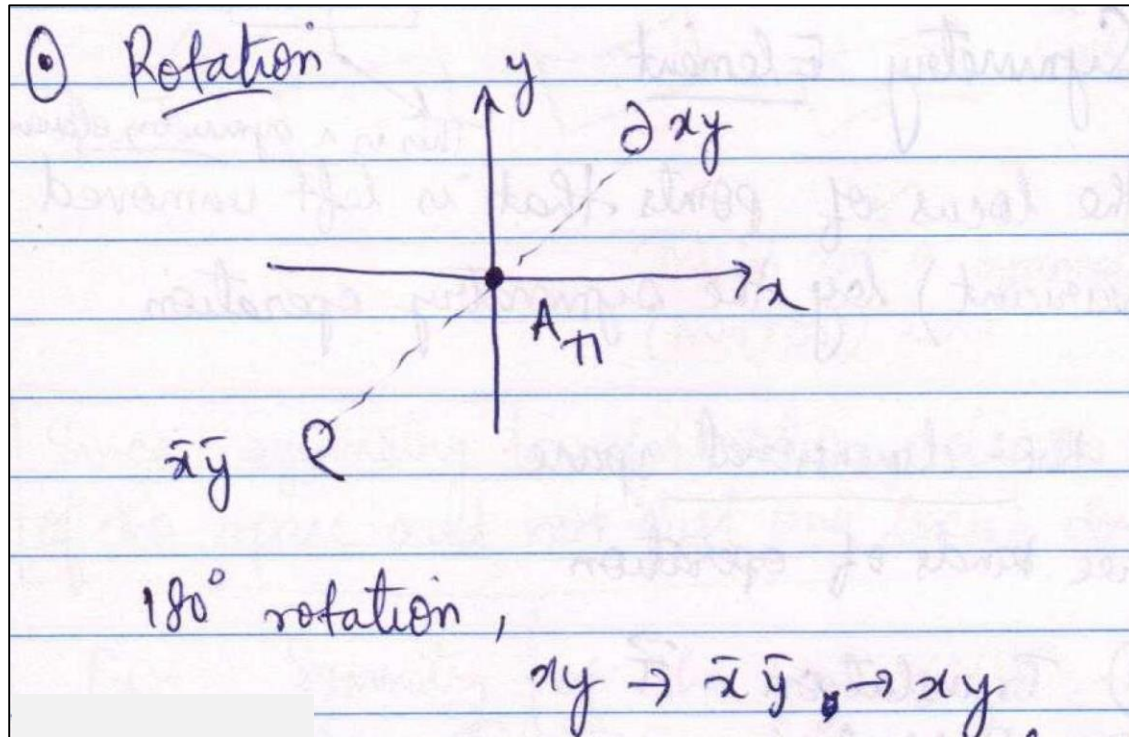 Rotation
y
xy
x
Aπ
x̄ȳ
180° rotation,
xy → x̄ȳ → xy